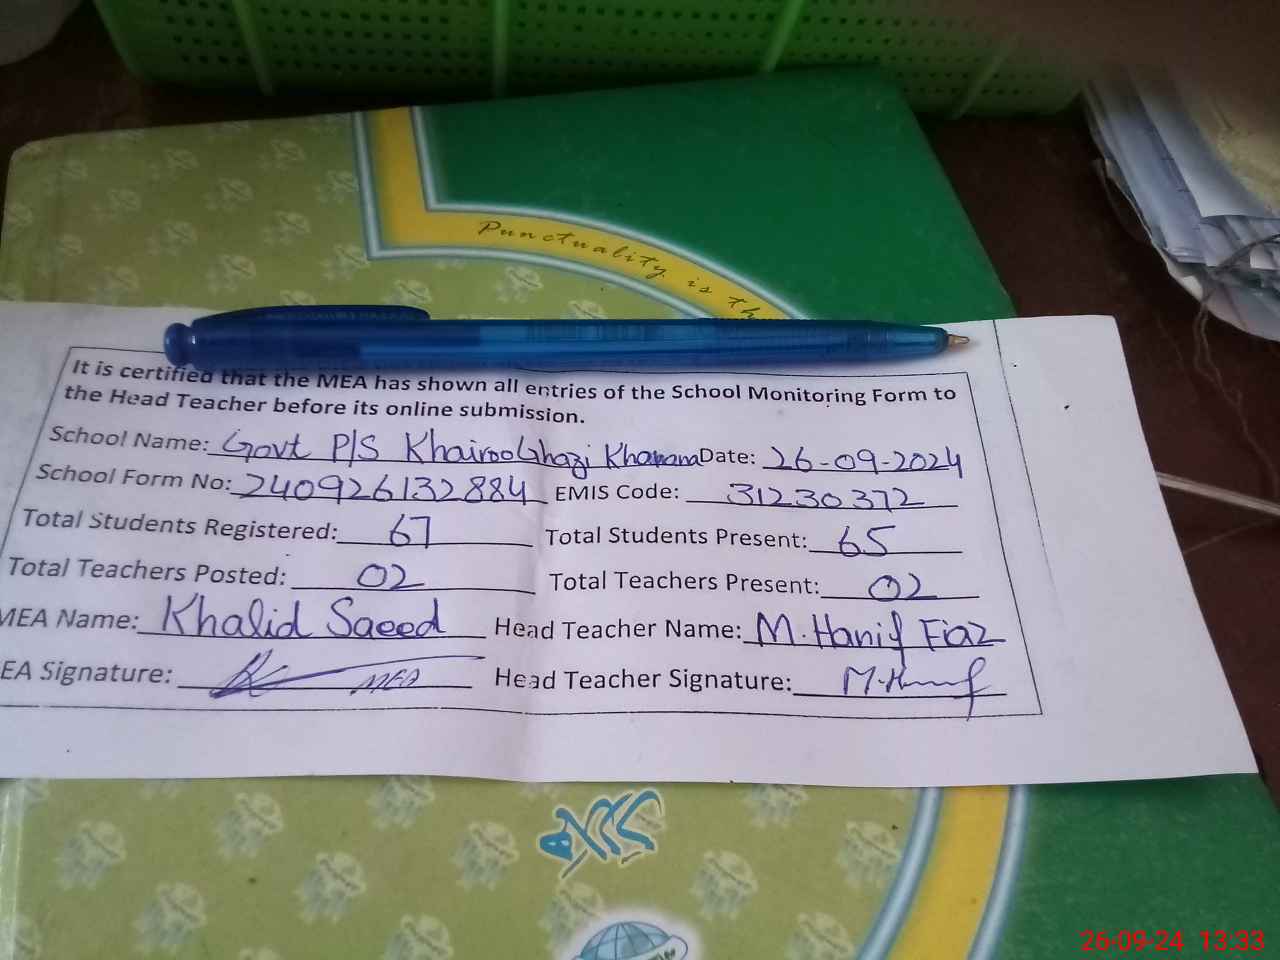 Punctuality is th
It is certified that the MEA has shown all entries of the School Monitoring Form to
the Head Teacher before its online submission.
School Name: Govt P/S Khairoo Ghazi Khanana Date: 26-09-2024
School Form No: 240926132884 EMIS Code: 31230372
Total Students Registered: 67 Total Students Present: 65
Total Teachers Posted: 02 Total Teachers Present: 02
MEA Name: Khalid Saeed Head Teacher Name: M. Hanif Fiaz
EA Signature: MEA Head Teacher Signature: M. Hanif
26-09-24 13:33